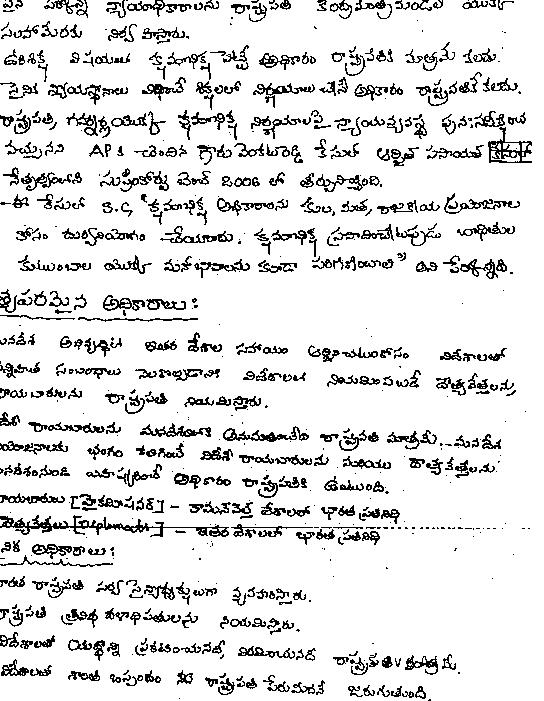 పైన పేర్కొన్న న్యాయాధికారాలను రాష్ట్రపతి కేంద్రమంత్రిమండలి యొక్క
సలహా మేరకు నిర్వహిస్తారు.
ఉరిశిక్ష విషయంలో క్షమాభిక్ష పెట్టే అధికారం రాష్ట్రపతికి మాత్రమే కలదు.
సైనిక న్యాయస్థానాలు విధించే శిక్షలలో నిర్ణయాలు చేసే అధికారం రాష్ట్రపతికే కలదు.
రాష్ట్రపతి, గవర్నర్ల యొక్క క్షమాభిక్ష నిర్ణయాలపై న్యాయవ్యవస్థ పునఃసమీక్షించ
వచ్చునని AP కి చెందిన గౌరు వెంకటరెడ్డి కేసులో అర్జిత్ పసాయత్
నేతృత్వంలోని సుప్రీంకోర్టు బెంచ్ 2006 లో తీర్పునిచ్చింది.
- ఈ కేసులో S.C, "క్షమాభిక్ష అధికారాలను కుల, మత, రాజకీయ ప్రయోజనాల
కోసం దుర్వినియోగం చేయరాదు. క్షమాభిక్ష ప్రసాదించేటప్పుడు బాధితుల
కుటుంబాల యొక్క మనోభావాలను కూడా పరిగణించాలి" అని పేర్కొన్నది.
త్యపరమైన అధికారాలు :
మనదేశ అభివృద్ధికి ఇతర దేశాల సహాయం ఆర్జించుటకోసం విదేశాలతో
సన్నిహిత సంబంధాలు నెలకొల్పడానికి విదేశాలలో నియమింపబడే దౌత్యవేత్తలను,
రాయబారులను రాష్ట్రపతి నియమిస్తారు.
దేశీ రాయబారులను మనదేశంలోకి అనుమతించేది రాష్ట్రపతి మాత్రమే. - మనదేశ
ప్రయోజనాలకు భంగం కలిగించే విదేశీ రాయబారులను మరియు దౌత్యవేత్తలను
మనదేశంనుండి బహిష్కరించే అధికారం రాష్ట్రపతికి ఉంటుంది.
రాయబారులు [హైకమీషనర్] - కామన్వెల్త్ దేశాలలో భారత ప్రతినిధి
దౌత్యవేత్తలు [Diplomats] - ఇతర దేశాలలో భారత ప్రతినిధి
నిక అధికారాలు :
భారత రాష్ట్రపతి సర్వ సైన్యాధ్యక్షులుగా వ్యవహరిస్తారు.
రాష్ట్రపతి త్రివిధ దళాధిపతులను నియమిస్తారు.
విదేశాలతో యుద్ధాన్ని ప్రకటించునది, విరమించునది రాష్ట్రపతి మాత్రమే.
విదేశాలతో శాంతి ఒప్పందం కూడా రాష్ట్రపతి పేరుమీదనే జరుగుతుంది.